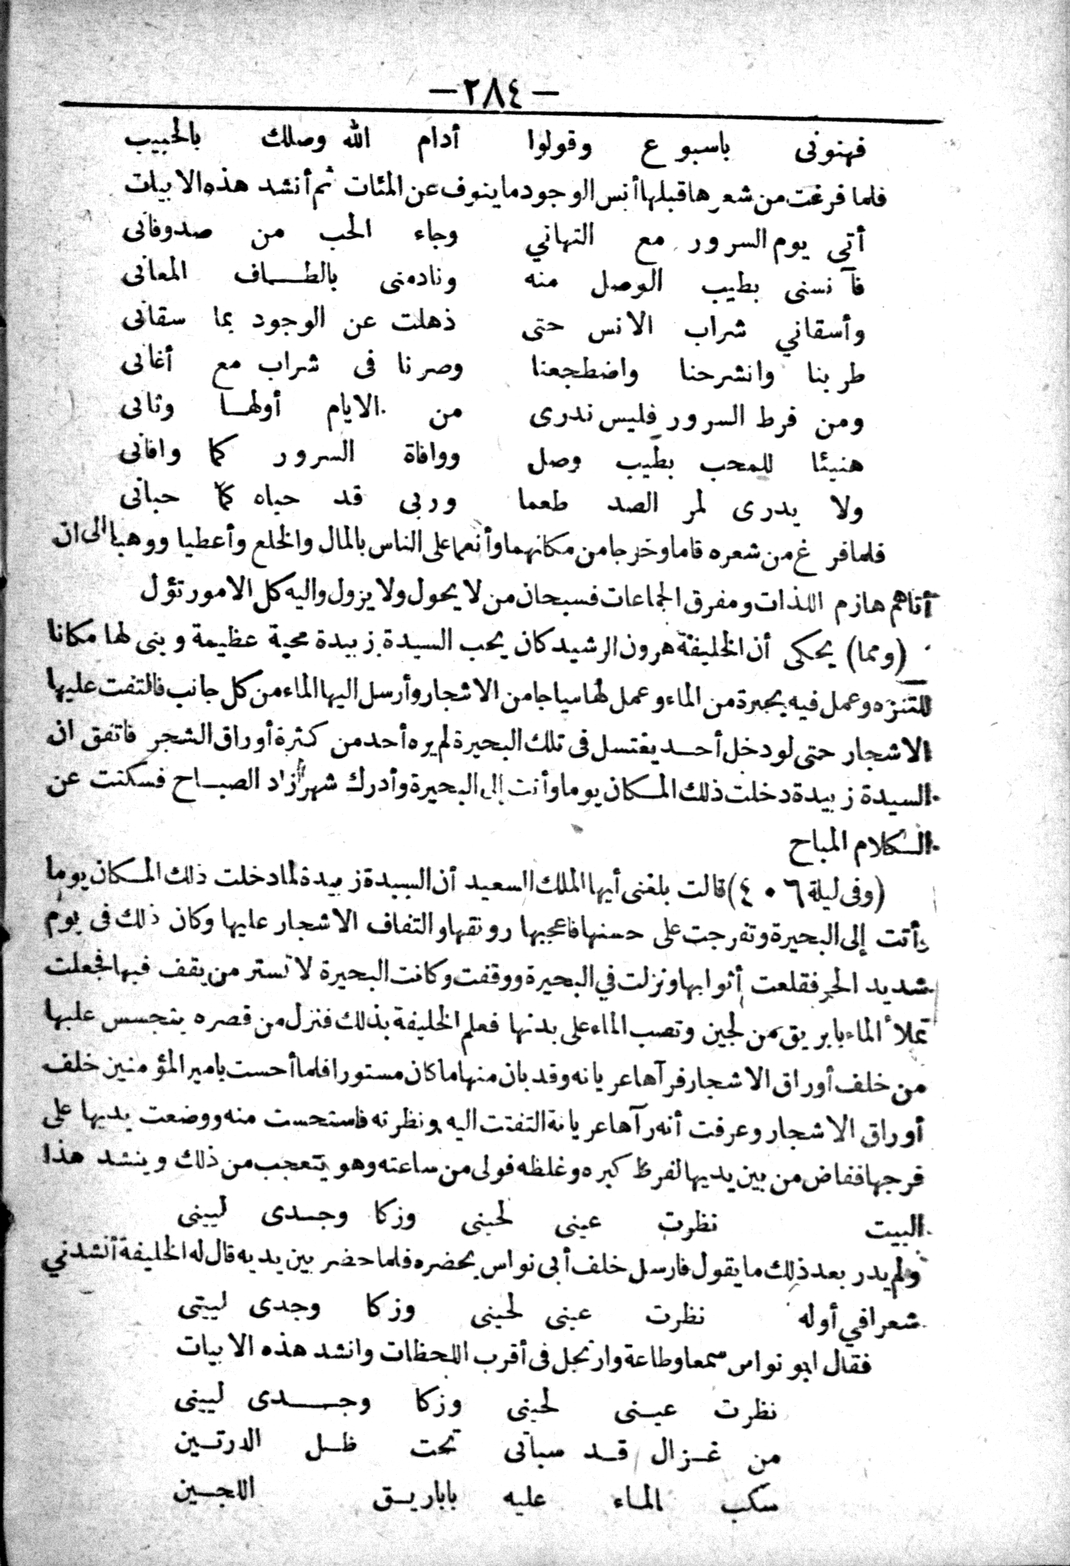 — ٢٨٤ —
فهنونى باسبوع وقولوا أدام الله وصلك بالحبيب
فلما فرغت من شعرها قبلها أنس الوجود ما ينوف عن المئات ثم أنشد هذه الابيات
أتى يوم السرور مع التهاني وجاء الحب من صدوفانى
فآنسنى بطيب الوصل منه ونادمنى بالطاف المعانى
وأسقاني شراب الانس حتى ذهلت عن الوجود بما سقانى
طربنا وانشرحنا واضطجعنا وصرنا فى شراب مع أغانى
ومن فرط السرور فليس ندرى من الايام أولها وثانى
هنيئا للمحب بطيب وصل ووافاة السرور كما وافانى
ولا يدرى لمر الصد طعما وربى قد حباه كما حبانى
فلما فرغ من شعره قاما وخرجا من مكانهما وأنعما على الناس بالمال والخلع وأعطيا ووهبا الى ان
أتاهم هازم اللذات ومفرق الجماعات فسبحان من لا يحول ولا يزول واليه كل الامور تؤل
(ومما) يحكى أن الخليفة هرون الرشيد كان يحب السيدة زبيدة محبة عظيمة وبنى لها مكانا
للتنزه وعمل فيه بحيرة من الماء وعمل لها سياجا من الاشجار وأرسل اليها الماء من كل جانب فالتفت عليها
الاشجار حتى لو دخل أحد يغتسل فى تلك البحيرة لم يره أحد من كثرة أوراق الشجر فاتفق ان
السيدة زبيدة دخلت ذلك المكان يوما وأتت إلى البحيرة وأدرك شهرزاد الصباح فسكتت عن
الكلام المباح
(وفى ليلة ٤٠٦) قالت بلغنى أيها الملك السعيد أن السيدة زبيدة لما دخلت ذلك المكان يوما
وأتت إلى البحيرة وتفرجت على حسنها فاعجبها رونقها والتفاف الاشجار عليها وكان ذلك فى يوم
شديد الحر فقلعت أثوابها ونزلت في البحيرة ووقفت وكانت البحيرة لا تستر من يقف فيها فجعلت
تملأ الماء بابريق من لجين وتصب الماء على بدنها فعلم الخليفة بذلك فنزل من قصره يتجسس عليها
من خلف أوراق الاشجار فرآها عريانه وقد بان منها ما كان مستورا فلما أحست بامير المؤمنين خلف
أوراق الاشجار وعرفت أنه رآها عريانة التفتت اليه ونظرته فاستحست منه ووضعت يديها على
فرجها ففاض من بين يديها لفرط كبره وغلظه فولى من ساعته وهو يتعجب من ذلك وينشد هذا
البيت نظرت عينى لحينى وزكا وجدى لبينى
ولم يدر بعد ذلك ما يقول فارسل خلف أبى نواس يحضره فلما حضر بين يديه قال له الخليفة أنشدني
شعرا في أوله نظرت عينى لحينى وزكا وجدى لبينى
فقال ابو نواس سمعا وطاعة وارتجل فى أقرب اللحظات وانشد هذه الابيات
نظرت عينى لحينى وزكا وجدى لبينى
من غزال قد سبانى تحت ظل الدرتين
سكب الماء عليه باباريق اللجين